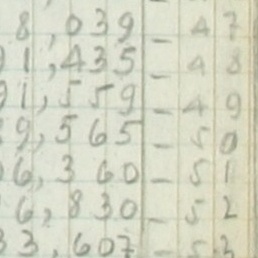 8,039 - 47
1,435 - 48
91,559 - 49
9,565 - 50
6,360 - 51
6,830 - 52
3,607 - 53